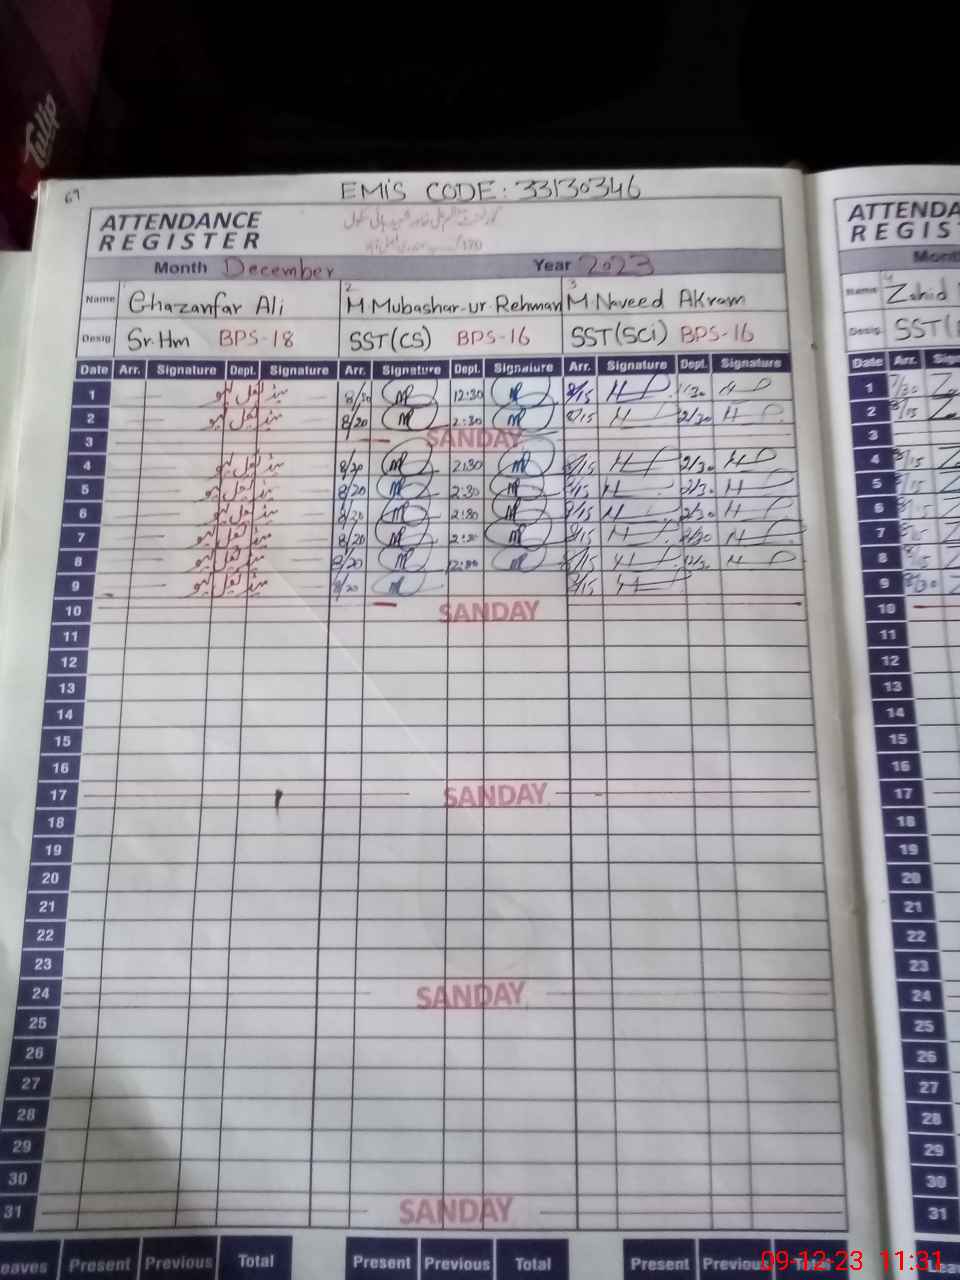 Tulip
69
EMIS CODE: 33130346
ATTENDANCE
REGISTER
Month December Year 2023
Name Ghazanfar Ali 2 M Mubashar-ur-Rehman 3 M Naveed Akram
Desig. Sr. Hm BPS-18 SST(CS) BPS-16 SST(SCi) BPS-16
Date Arr. Signature Dept. Signature Arr. Signature Dept. Signature Arr. Signature Dept. Signature
1 12:30 8/15 1:30
2 8/20 2:30 8/15 2/30
3 SANDAY
4 8/20 2:30 8/15 2/30
5 8/20 2:30 8/15 2/30
6 8/20 2:30 8/15 2/30
7 8/20 2:30 8/15 2/30
8 8/20 8/15
9 8/20 8/15
10 SANDAY
11
12
13
14
15
16
17 SANDAY
18
19
20
21
22
23
24 SANDAY
25
26
27
28
29
30
31 SANDAY
Leaves Present Previous Total Present Previous Total Present Previous Total
ATTENDA
REGIS
Month
Name 4 Zahid
Desig. SST(
Date Arr. Sig
1 7/30
2 8/15
3
4 8/15
5 8/15
6 8/15
7 8/15
8 8/15
9 8/30
10
11
12
13
14
15
16
17
18
19
20
21
22
23
24
25
26
27
28
29
30
31
Lea
09-12-23 11:31